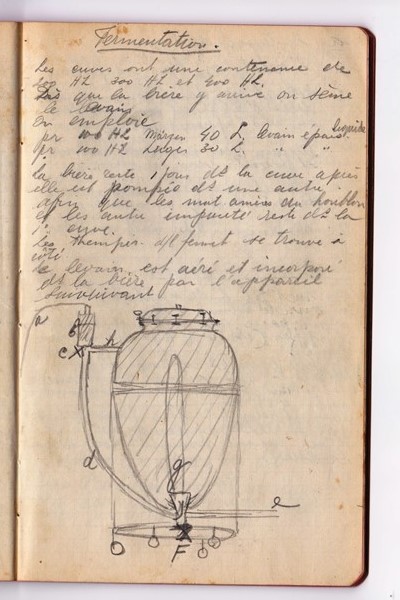 Fermentation.
Les cuves ont une contenance de
200 HL 300 HL et 400 HL.
Dès que la bière y arrive on sème
le levain
on emploie
pr 100 HL Märzen 40 L. levain épais liquide
pr 100 HL Lager 30 L. " "
La bière reste 1 jours ds la cuve après
elle est pompée ds une autre
afin que les mat amères du houblon
et les autre impureté reste ds la
1e cuve.
Les
se trouve à
côté
le levain est aéré et incorporé
ds la bière par l'appareil
suivant
a
b
c
h
d
g
e
F